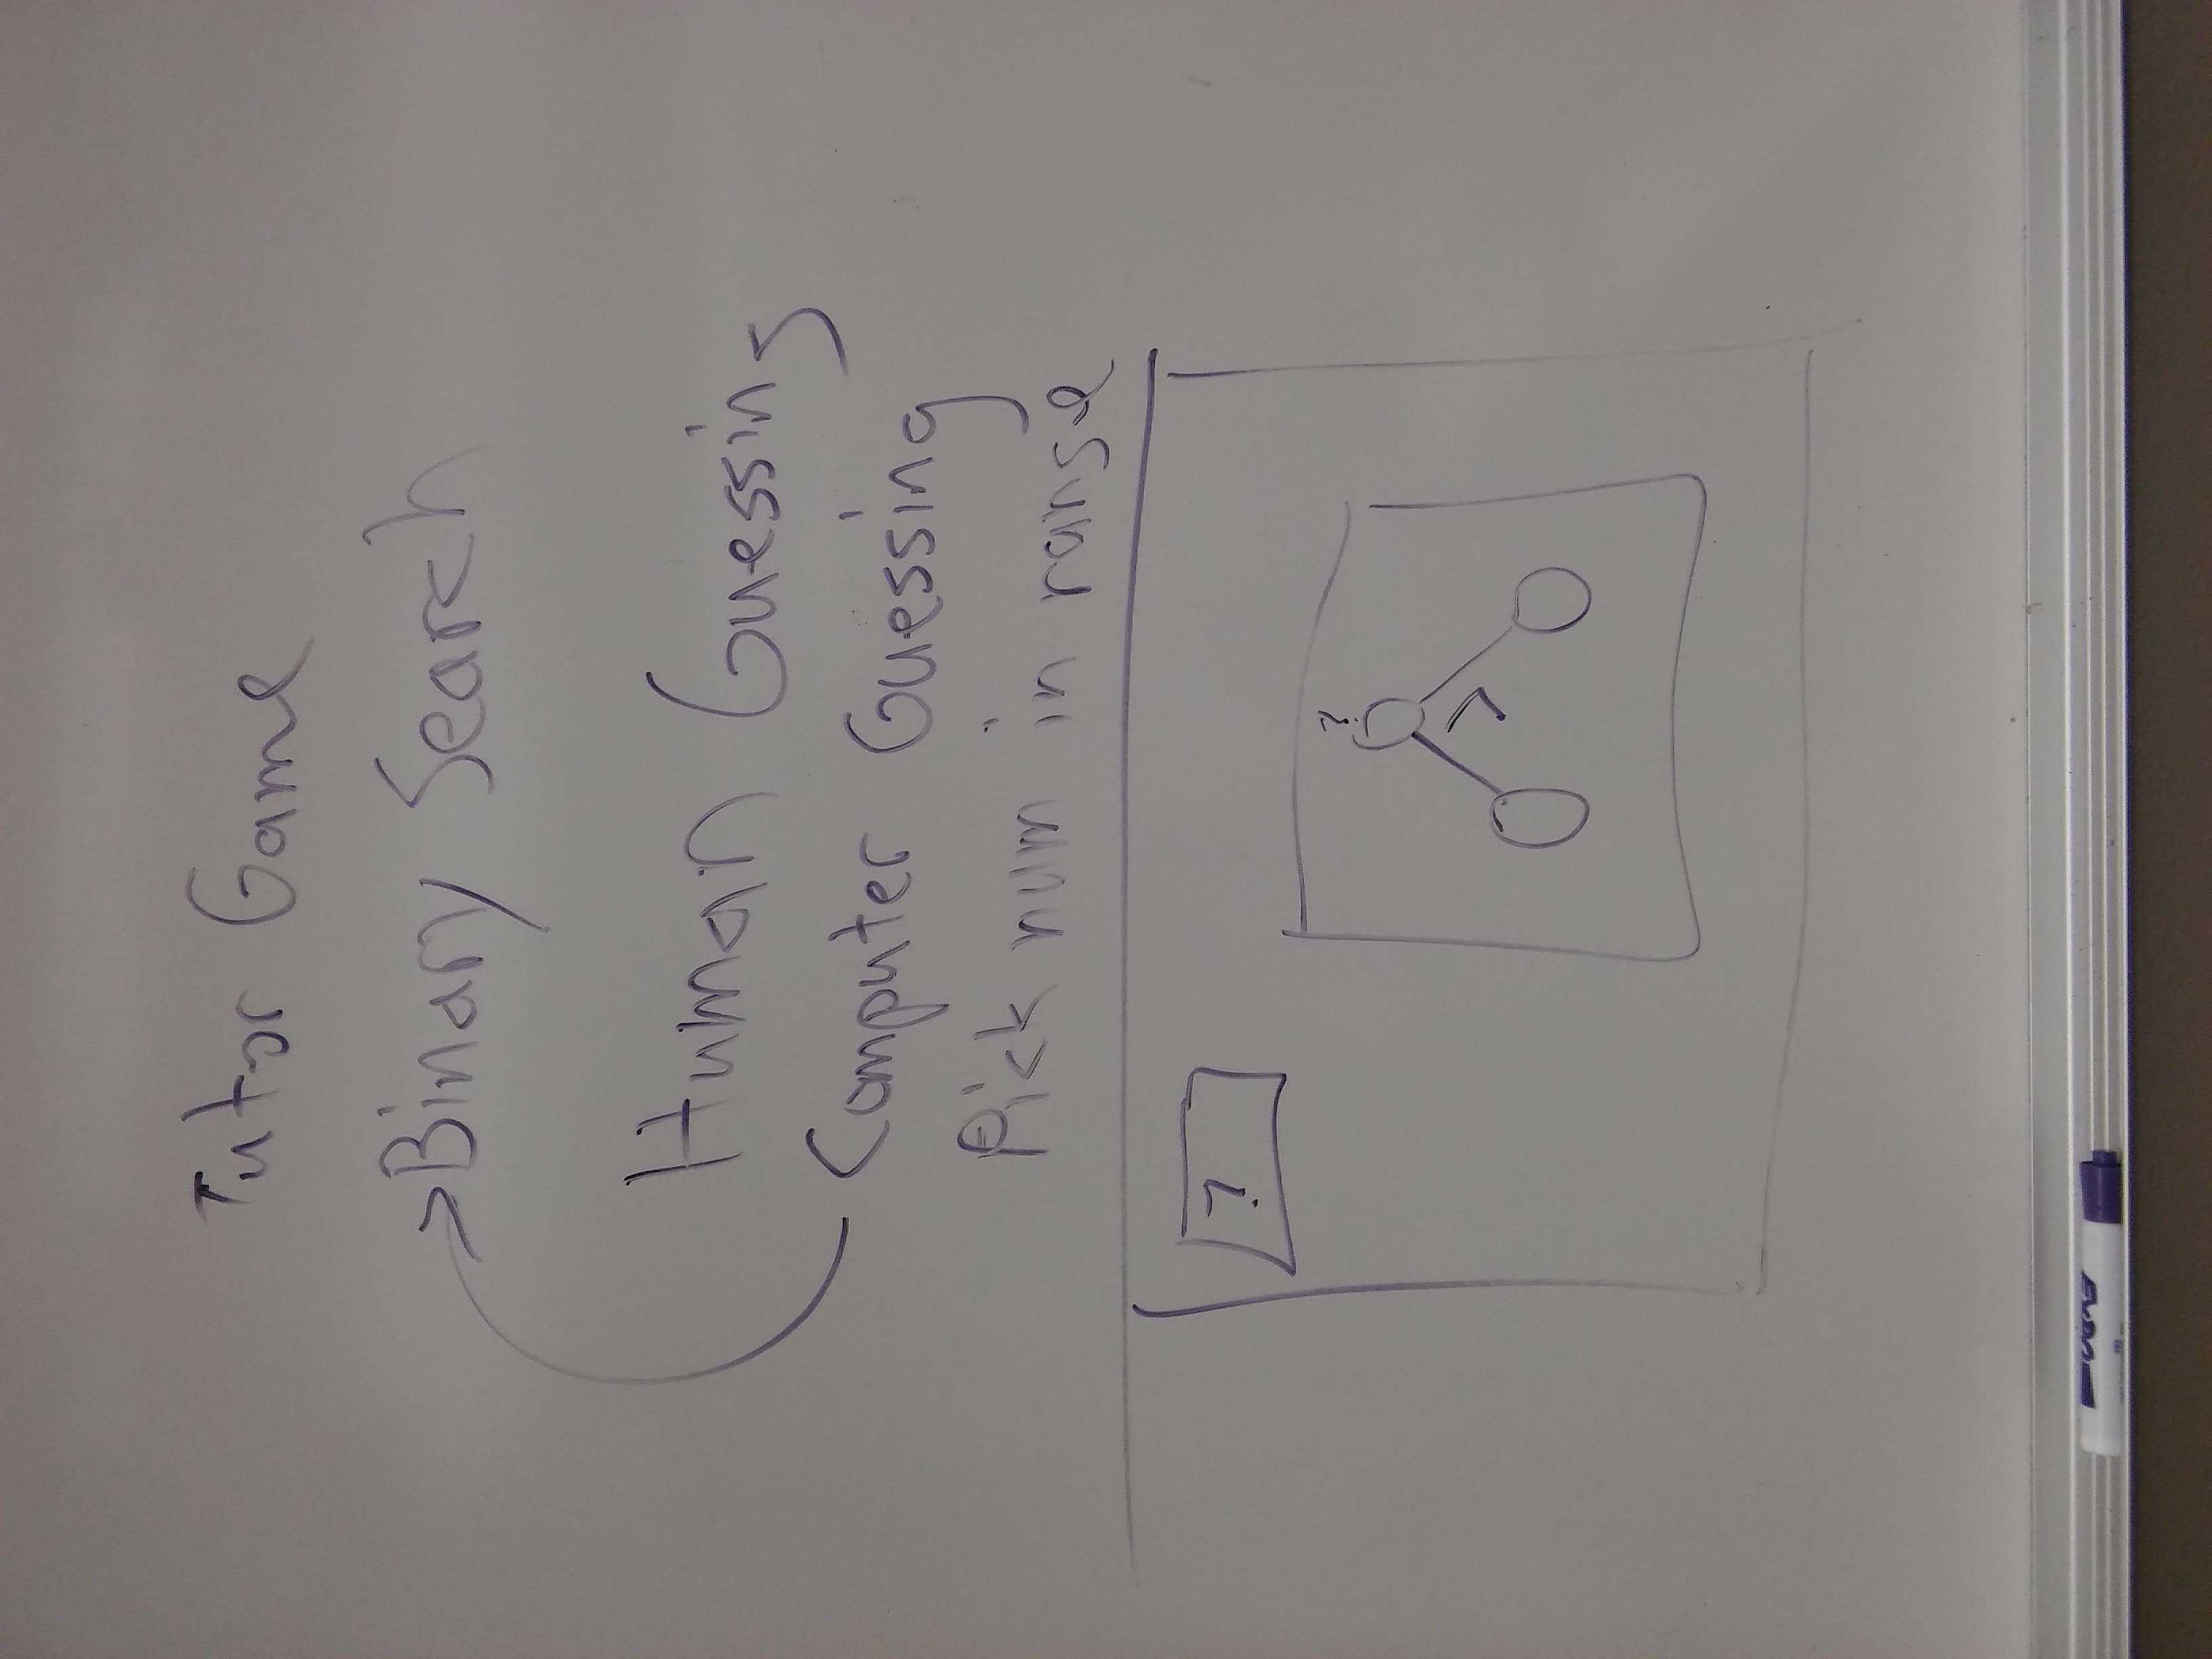 Tutor Game
Binary Search
Human Guessing
Computer Guessing
Pick num in range
?
?
EXPO